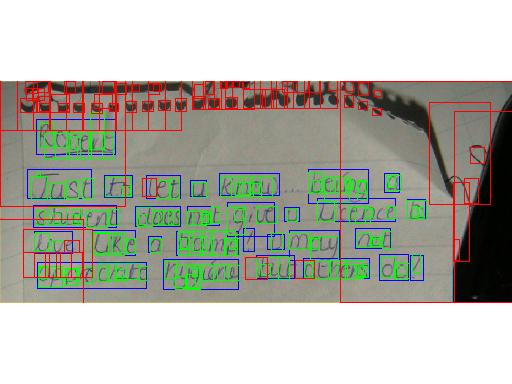 Robert
Just to let u know.... being a
student does not give u licence to
live like a tramp! U may not
appreciate hygiene but others do!